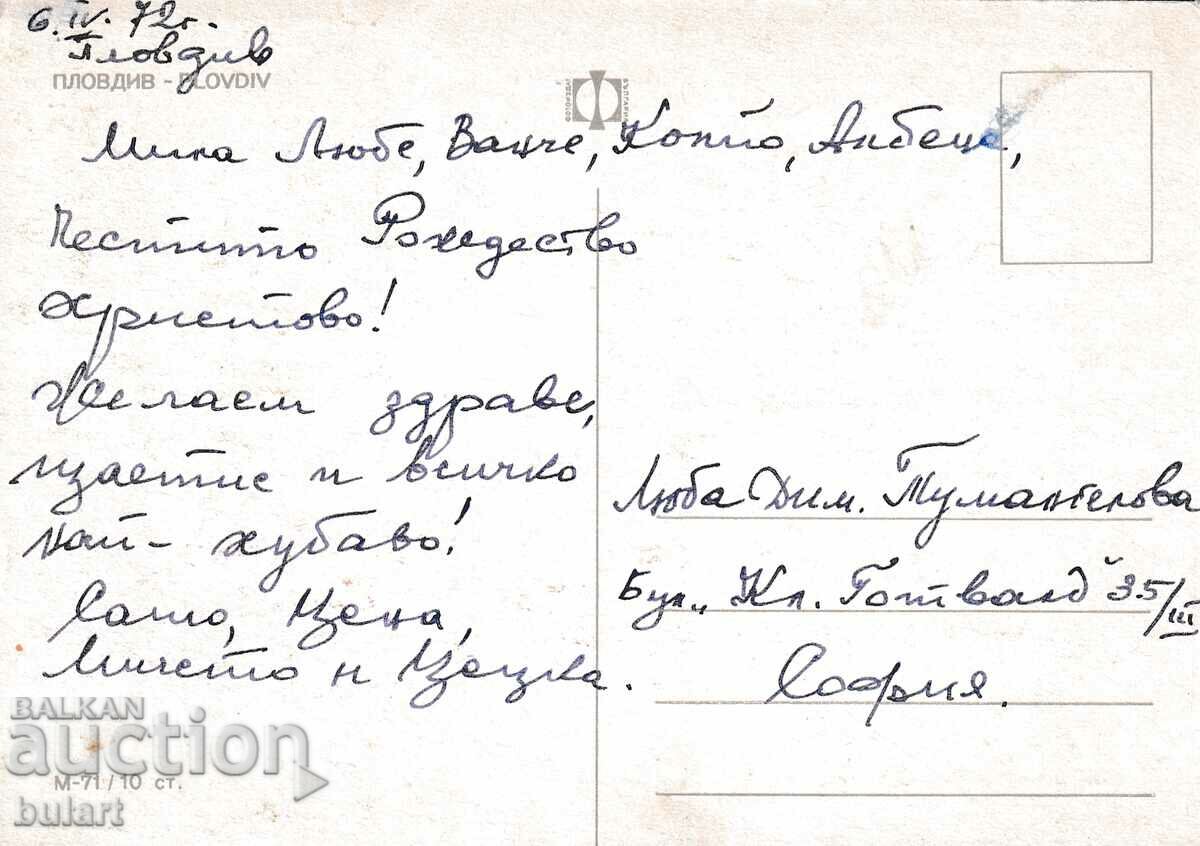 6.IV.72г.
Пловдив
ПЛОВДИВ - PLOVDIV
ФОТОИЗДАТ БЪЛГАРИЯ
Мила Любе, Ванче,
Честито Рождество
Христово!
Желаем здраве,
щастие и всичко
най-хубаво!
Сашо, Цена,
Мичето и Цецка.
Люба Дим.
Бул. „Кл. Готвалд" 35/III
София.
BALKAN
auction
М-71/10 ст.
bulart